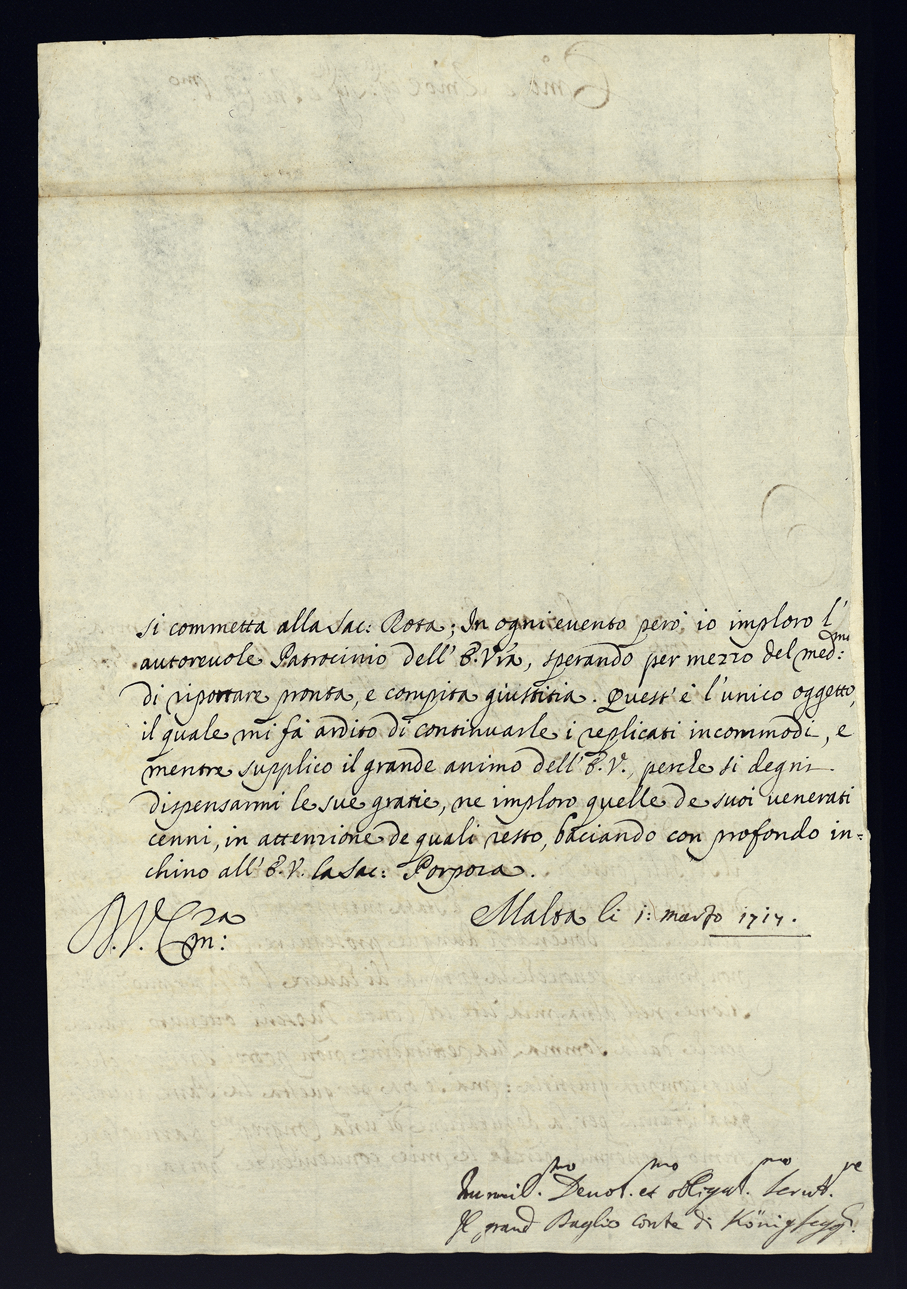 si commetta alla Sac: Rota; In ogni evento però, io imploro l'
autorevole Patrocinio dell' E. Vra, sperando per mezzo del med:mo
di riportare pronta, e compita giustitia. Quest' è l'unico oggetto,
il quale mi fà ardito di continuarle i replicati incommodi, e
mentre supplico il grande animo dell' E.V., perche si degni
dispensarmi le sue gratie, ne imploro quelle de suoi venerati
cenni, in attenzione de quali resto, baciando con profondo in=
chino all' E.V. la Sac: Porpora.
Malta li 1: marzo 1717.
V. Em:za
Humil.mo Devot.mo et obligat.mo Servit.re
Il grand Baglio conte di Königsegg